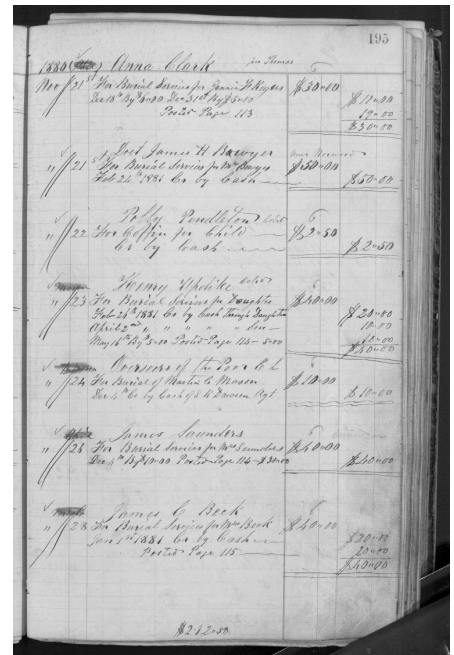 195
1880 Anna Clark
Nov 21st For Burial Services for Jennie H Rogers $30=00
Dec 18th By 5=00 Dec 31st By $5=00 $10=00
Posted Page 113
$30=00
Doct James H Bawyer
" 21st For Burial Services for Mrs Bawyer $50=00
Feb 24th 1881 Cr by Cash $50=00
Polly Pendleton
" 22 For Coffin for Child $2=50
Cr by Cash $2=50
Henry Updike
" 23 For Burial Services for Daughter $40=00
Feb 28th 1881 Cr by Cash through Daughter $20=00
April 2nd " " " " " 10=00
May 16th By 5=00 Posted Page 114 5=00 10=00
$40=00
Overseers of the Poor
" 24 For Burial of Martin C Mason $10=00
Dec 4th Cr by Cash of Dawson Agt $10=00
James Saunders
" 26 For Burial Services for Mrs Saunders $40=00
Dec By 10=00 Posted Page 114 $30=00 $40=00
James C Beck
" 28 For Burial Services for Mrs Beck $40=00
Jan 1st 1881 Cr by Cash $20=00
Posted Page 115 20=00
$40=00
$212=50